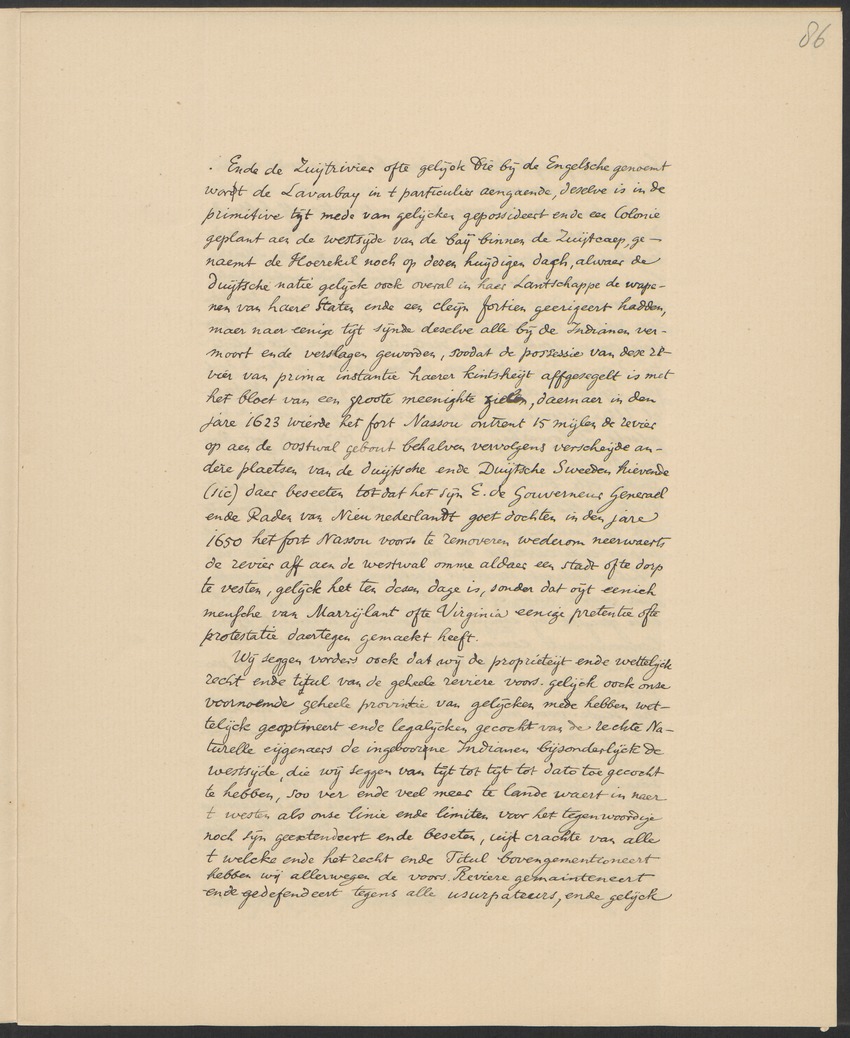 86
. Ende de Zuijtrivier ofte gelijck Die bij de Engelsche genoemt
wordt de Lavarbay in t particulier aengaende, deselve is in de
primitive tijt mede van gelijcken gepossideert ende een Colonie
geplant aen de westsijde van de baij binnen de Zuijtcaep, ge-
naemt de Hoerekil noch op desen huijdigen dagh, alwaer de
duijtsche natie gelijck oock overal in haer Lantschappe de wape-
nen van haere Staten ende een cleijn fortien geerigeert hadden,
maer naer eenige tijt sijnde deselve alle bij de Indianen ver-
moort ende verslagen geworden, soodat de possessie van dese re-
vier van prima instantie haerer kintsheijt affgesegelt is met
het bloet van een groote meenighte zielen, daernaer in den
jare 1623 wierde het fort Nassou ontrent 15 mijlen de revier
op aen de oostwal gebout behalven vervolgens verscheijde an-
dere plaetsen van de duijtsche ende Duijtsche Sweeden hievende
(sic) daer beseeten tot dat het sijn E. de Gouverneur Generael
ende Raden van Nieu nederlandt goet dochten in den jare
1650 het fort Nassou voors. te removeren wederom neerwaerts
de revier aff aen de westwal omme aldaer een stadt ofte dorp
te vesten, gelijck het ten desen dage is, sonder dat oijt eenich
mensche van Marrijlant ofte Virginia eenige pretentie ofte
protestatie daertegen gemaekt heeft.
Wij seggen vorders oock dat wij de proprieteijt ende wettelijck
recht ende titul van de geheele reviere voors. gelijck oock onse
voornoemde geheele provintie van gelijcken mede hebben wet-
telijck geoptineert ende legalijcken gecocht van de rechte Na-
turelle eijgenaers de ingeboorne Indianen bijsonderlijck de
westsijde, die wij seggen van tijt tot tijt tot dato toe gecocht
te hebben, soo ver ende veel meer te lande waert in naer
t westen als onse linie ende limiten voor het tegenwoordige
noch sijn geextendeert ende beseten, uijt crachte van alle
t welcke ende het recht ende Titul bovengementioneert
hebben wij allerwegen de voors. Reviere gemainteneert
ende gedefendeert tegens alle usurpateurs, ende gelijck